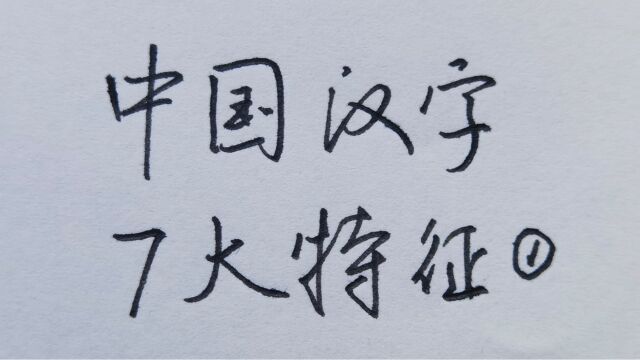 中国汉字
7大特征①